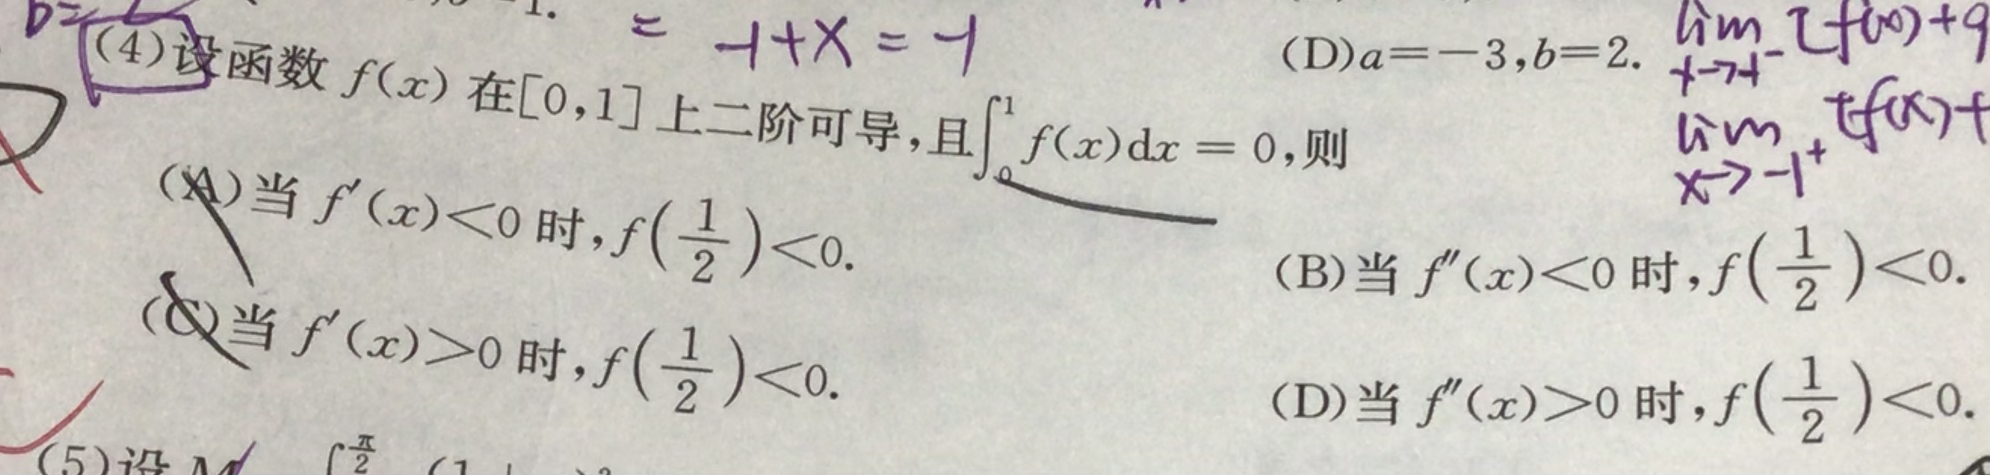 = -1+x = -1
(D)a=-3,b=2.
lim [f(x)+
x→-1⁻
(4)设函数 f(x) 在[0,1]上二阶可导,且∫₀¹ f(x)dx = 0,则
lim f(x)+
x→-1⁺
(A)当 f′(x)<0 时,f(1/2)<0.
(B)当 f″(x)<0 时,f(1/2)<0.
(C)当 f′(x)>0 时,f(1/2)<0.
(D)当 f″(x)>0 时,f(1/2)<0.
(5)设 M